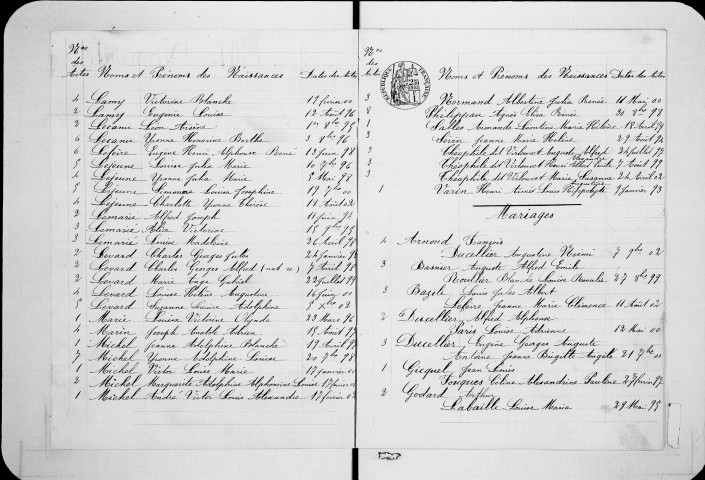 Nos
des
Actes Noms et Prénoms des Naissances Dates des Actes
4 Lamy Victorine Blanche 17 février 00
2 Lamy Eugénie Louise 12 Août 96
2 Lecanu Léon Arsène 1er 9bre 95
3 Lecanu Yvonne Honorine Berthe 3 9bre 96
6 Lefère Eugène Henri Alphonse René 13 Juin 98
5 Lejeune Louise Julia Marie 10 7bre 96
4 Lejeune Yvonne Julia Marie 5 Mai 98
5 Lejeune Simonne Louise Joséphine 19 7bre 00
4 Lejeune Charlotte Yvonne Thérèse 18 Août 02
2 Lemarie Alfred Joseph 11 Juin 94
3 Lemarié Alice Victorine 15 9bre 95
3 Lemarié Louise Madeleine 26 Avril 98
2 Levard Charles Georges Jules 24 Janvier 95
2 Levard Charles Georges Alfred 7 Avril 98
2 Levard Marie Gabriel 22 Juillet 99
4 Levard Louise Hélène Augustine 16 Juin 00
5 Levard Suzanne Louise Adolphine 5 02
1 Marie Louise Victoire 23 Mars 96
4 Marin Joseph Anatole Adrien 15 Août 97
1 Michel Jeanne Adolphine Blanche 19 Avril 97
7 Michel Yvonne Adolphine Louise 20 7bre 98
1 Michel Victor Louis Marie 17 Janvier 00
2 Michel Marguerite Adolphine Alphonsine Louise 17 février 01
1 Michel André Victor Louis Alexandre 17 février 02
Nos
des
Actes Noms et Prénoms des Naissances Dates des Actes
RÉPUBLIQUE FRANÇAISE
3 Normand Albertine Julia Renée 11 Mai 00
8 Philippan Agnès Eliza Renée 30 98
1 Salles Armande Léontine Marie Hélène 18 Avril 99
3 Jeanne Marie Hélène 29 Août 94
2 Théophile dit Verlouet Auguste Alfred 24 Juillet 92
3 Théophile dit Verlouet Henri Albert Emile 7 Août 99
3 Théophile dit Verlouet Marie Suzanne 24 Août 02
1 Varin Henri Aimé Louis Hippolyte 9 Janvier 93
Mariages
4 Arnond François
Ducellier Augustine Noémi 7 9bre 02
3 Basnier Auguste Alfred Emile
Blanche Louise 27 8bre 99
3 Bazile Louis Jules Albert
Lefère Jeanne Marie Clémence 11 Août 02
2 Ducellier Alfred Alphonse
Paris Louise Adrienne 12 Mai 00
3 Ducellier Eugène Georges Auguste
Antoine Jeanne Brigitte Angèle 21 7bre 00
1 Gicquel Jean Louis
Fouques Céline Alexandrine Pauline 27 février 97
2 Godard Arthur
Labaille Louise Maria 29 Mai 95